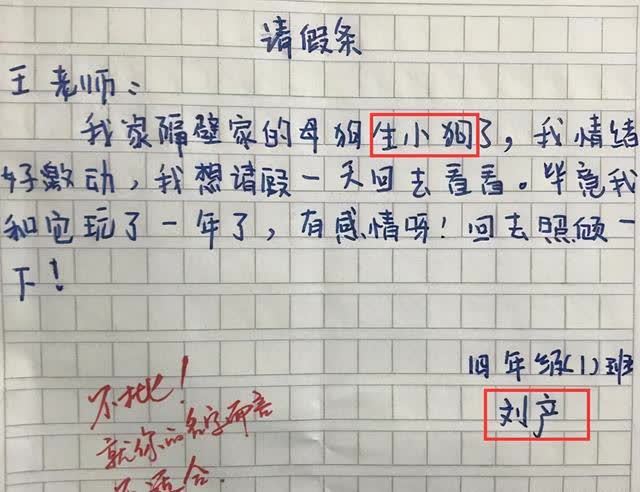 请假条
王老师：
我家隔壁家的母狗生小狗了，我情绪
好激动，我想请假一天回去看看。毕竟我
和它玩了一年了，有感情呀！回去照顾一
下！
四年级(1)班
刘产
不批！
就你的名字而言
不适合